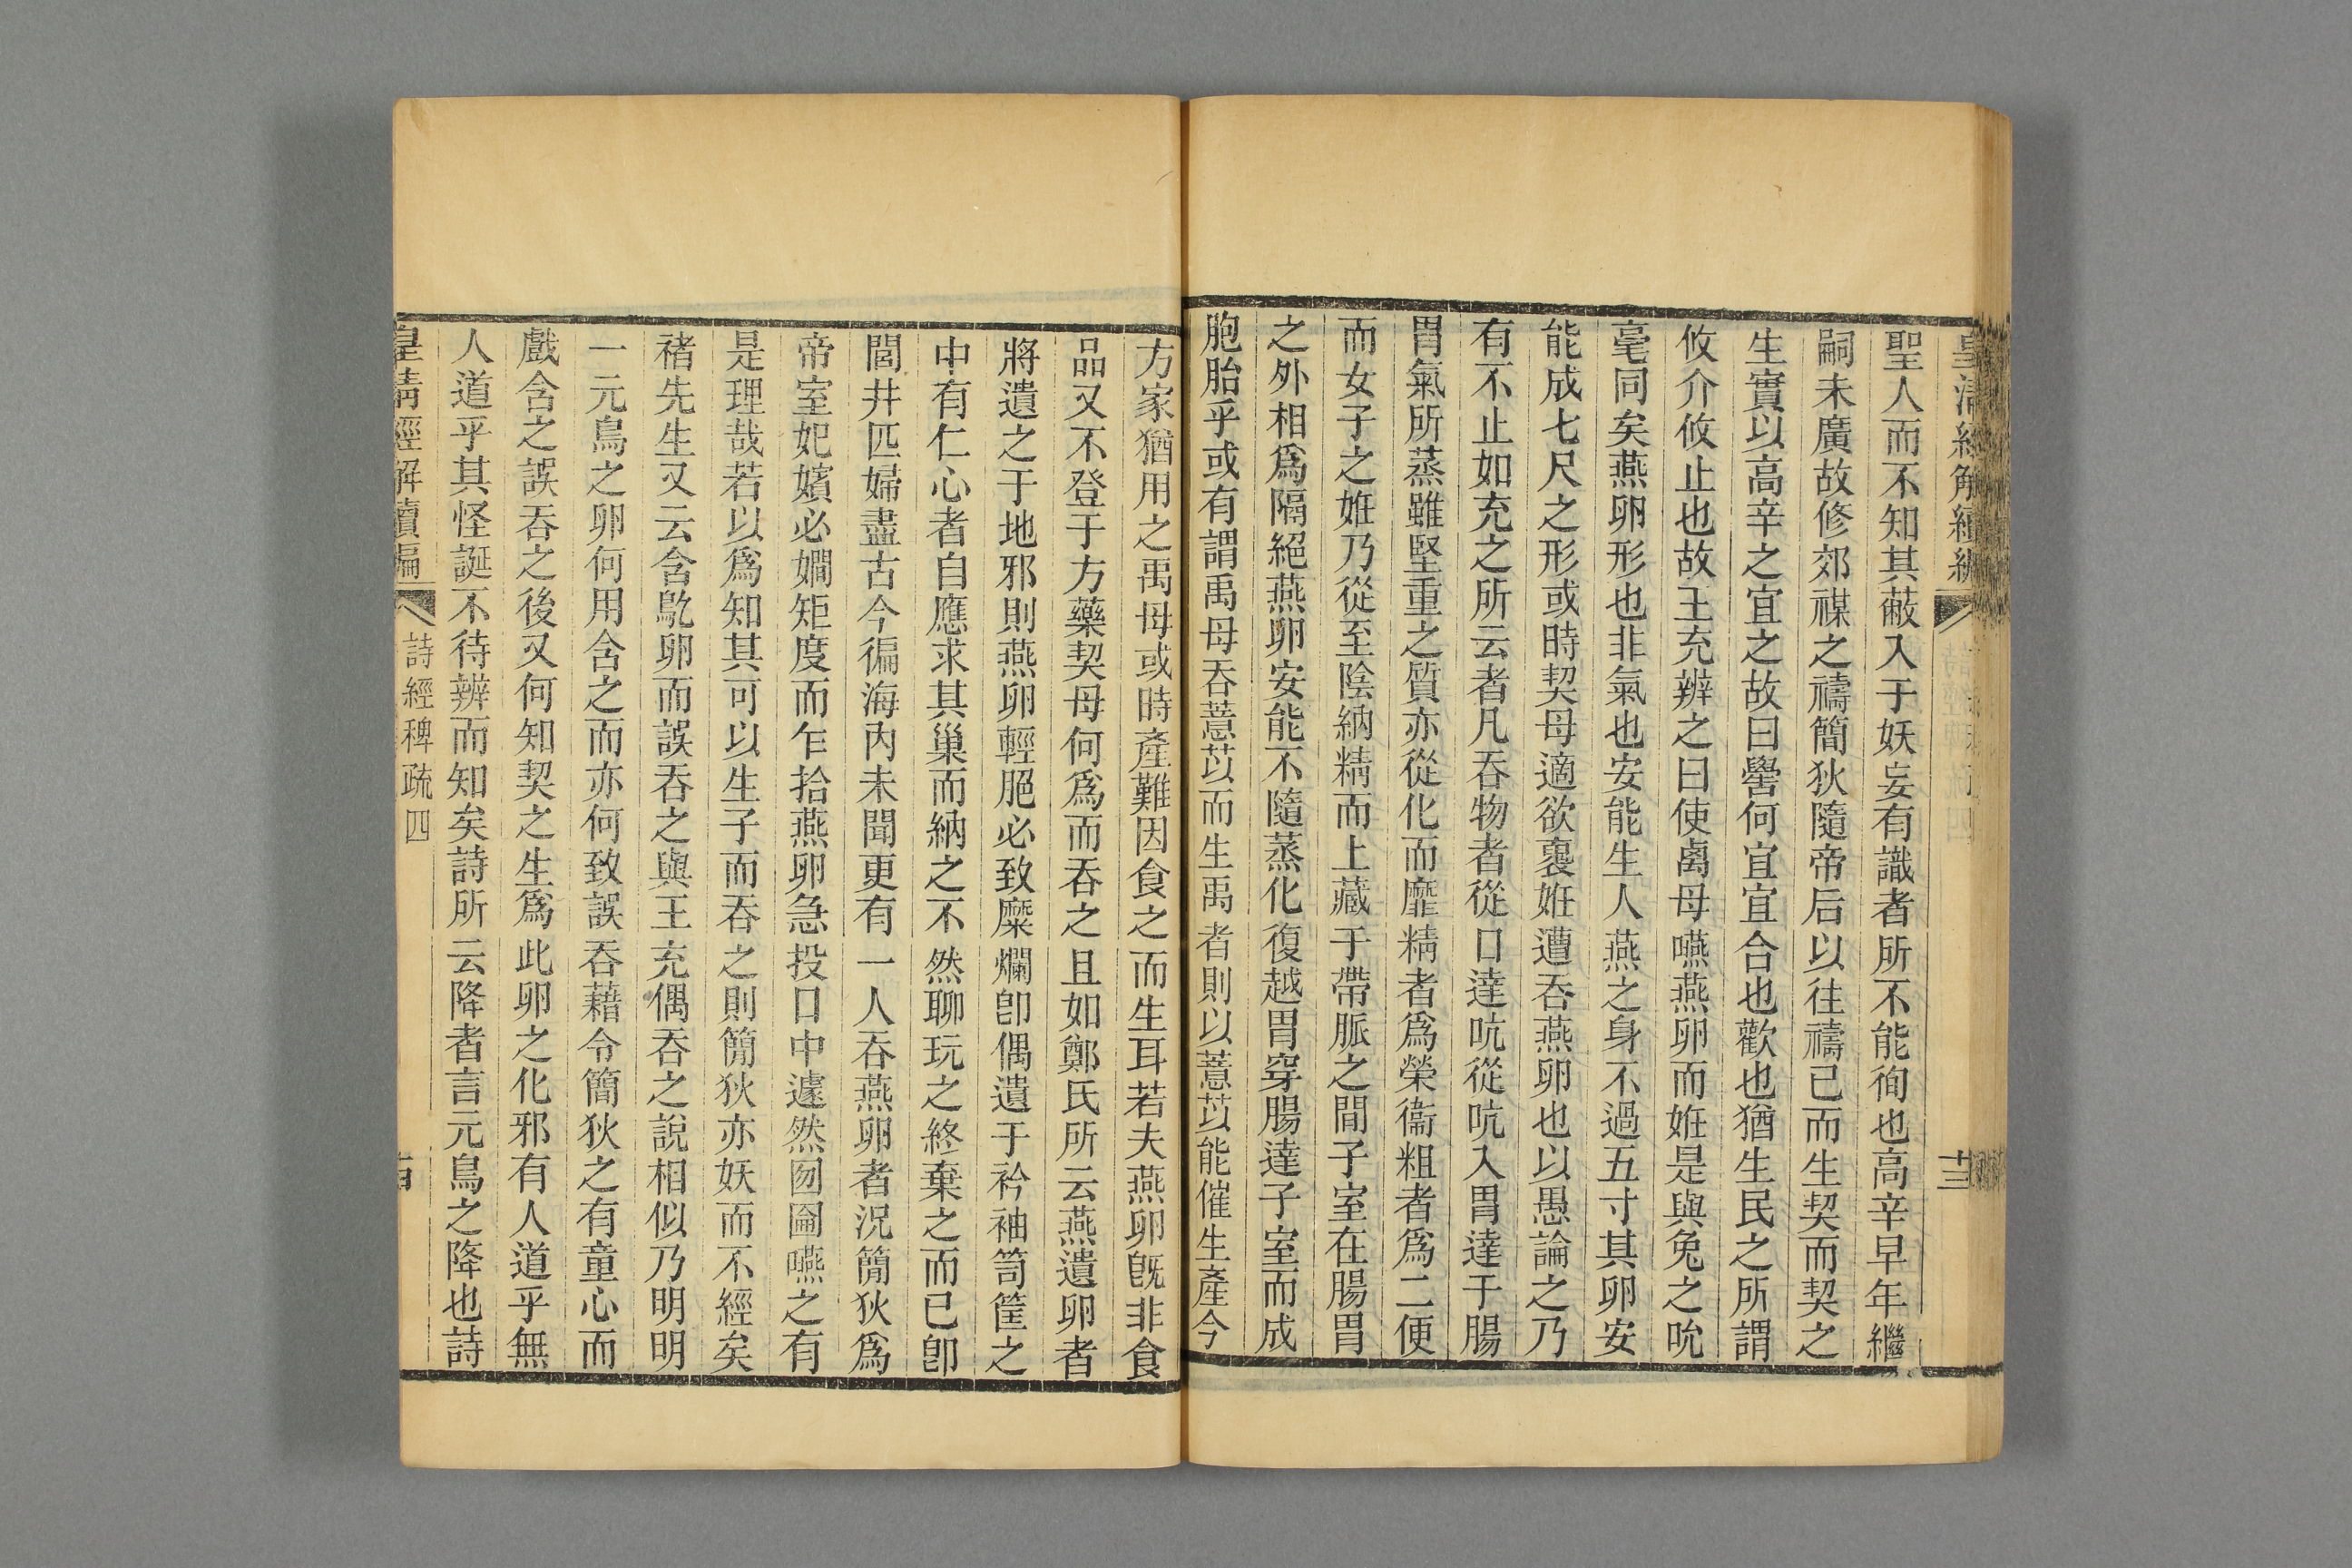 聖人而不知其蔽入于妖妄有識者所不能徇也高辛早年繼
嗣未廣故修郊禖之禱簡狄隨帝后以往禱已而生契而契之
生實以高辛之宜之故曰嚳何宜宜合也歡也猶生民之所謂
攸介攸止也故王充辨之曰使卨母嚥燕卵而姙是與兔之吮
毫同矣燕卵形也非氣也安能生人燕之身不過五寸其卵安
能成七尺之形或時契母適欲褱姙遭吞燕卵也以愚論之乃
有不止如充之所云者凡吞物者從口達吭從吭入胃達于腸
胃氣所蒸雖堅重之質亦從化而靡精者爲榮衞粗者爲二便
而女子之姙乃從至陰納精而上藏于帶脈之間子室在腸胃
之外相爲隔絕燕卵安能不隨蒸化復越胃穿腸達子室而成
胞胎乎或有謂禹母吞薏苡而生禹者則以薏苡能催生產今
方家猶用之禹母或時產難因食之而生耳若夫燕卵旣非食
品又不登于方藥契母何爲而吞之且如鄭氏所云燕遺卵者
將遺之于地邪則燕卵輕脃必致糜爛卽偶遺于衿袖笥筐之
中有仁心者自應求其巢而納之不然聊玩之終棄之而已卽
閭井匹婦盡古今徧海內未聞更有一人吞燕卵者況簡狄爲
帝室妃嬪必嫺矩度而乍拾燕卵急投口中遽然囫圇嚥之有
是理哉若以爲知其可以生子而吞之則簡狄亦妖而不經矣
褚先生又云含鳦卵而誤吞之與王充偶吞之說相似乃明明
一元鳥之卵何用含之而亦何致誤吞藉令簡狄之有童心而
戲含之誤吞之後又何知契之生爲此卵之化邪有人道乎無
人道乎其怪誕不待辨而知矣詩所云降者言元鳥之降也詩
皇清經解續編
詩經稗疏四